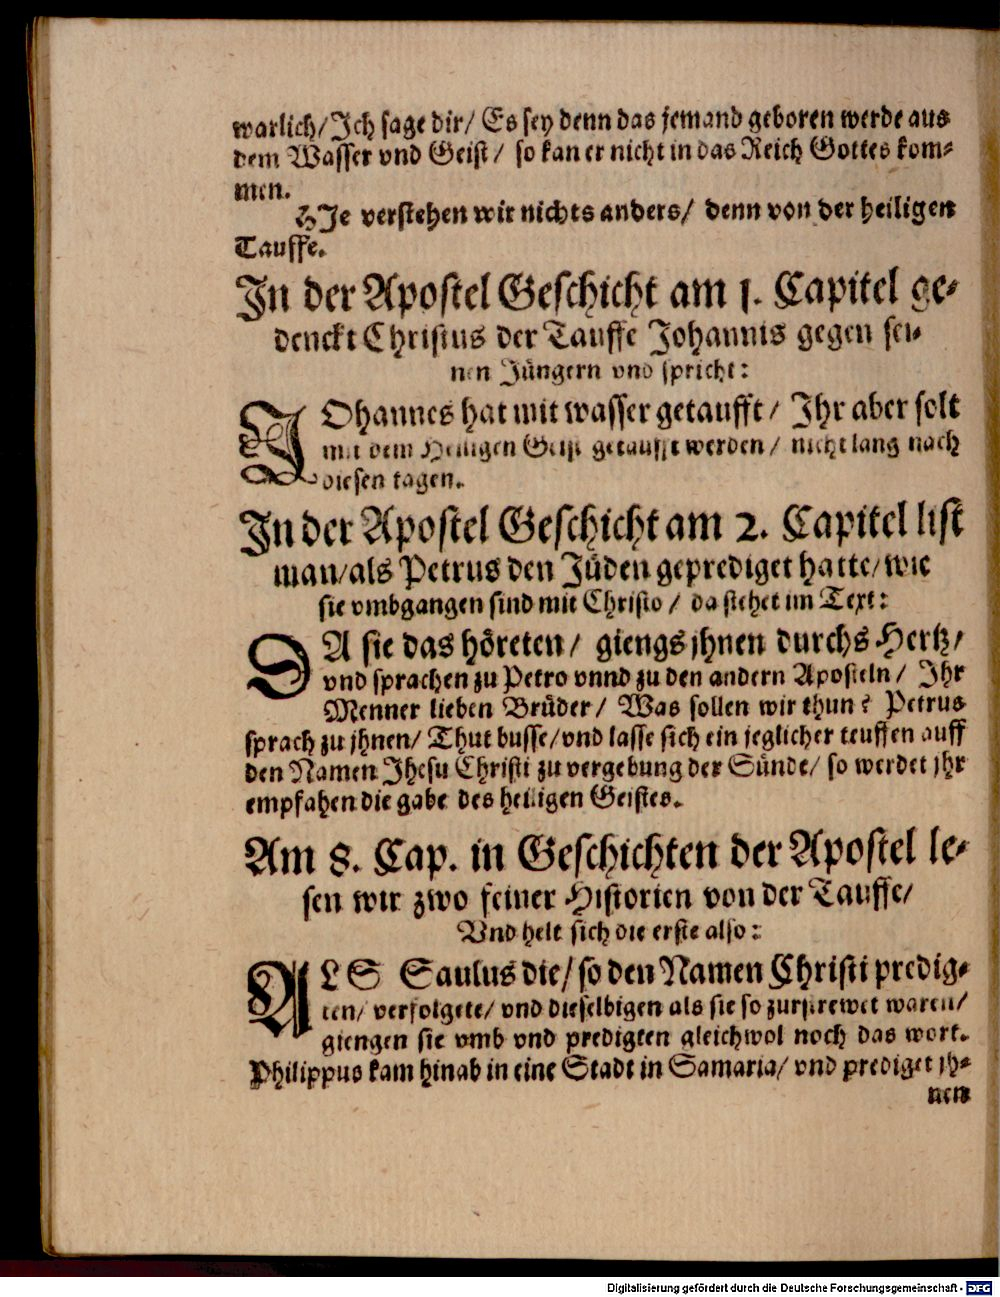 warlich/ Ich sage dir/ Es sey denn das jemand geboren werde aus
dem Wasser vnd Geist/ so kan er nicht in das Reich Gottes kom-
men.
HIe verstehen wir nichts anders/ denn von der heiligen
Tauffe.
In der Apostel Geschicht am 1. Capitel ge-
denckt Christus der Tauffe Johannis gegen sei-
nen Jüngern vnd spricht:
JOhannes hat mit wasser getaufft/ Ihr aber solt
mit dem Heiligen Geist getaufft werden/ nicht lang nach
diesen tagen.
In der Apostel Geschicht am 2. Capitel list
man/ als Petrus den Jüden geprediget hatte/ wie
sie vmbgangen sind mit Christo/ da stehet im Text:
DA sie das höreten/ giengs jhnen durchs Hertz/
vnd sprachen zu Petro vnnd zu den andern Aposteln/ Ihr
Menner lieben Brüder/ Was sollen wir thun? Petrus
sprach zu jhnen/ Thut busse/ vnd lasse sich ein jeglicher teuffen auff
den Namen Jhesu Christi zu vergebung der Sünde/ so werdet jhr
empfahen die gabe des heiligen Geistes.
Am 8. Cap. in Geschichten der Apostel le-
sen wir zwo feiner Historien von der Tauffe/
Vnd helt sich die erste also:
ALS Saulus die/ so den Namen Christi predig-
ten/ verfolgete/ vnd dieselbigen als sie so zurstrewet waren/
giengen sie vmb vnd predigten gleichwol noch das wort.
Philippus kam hinab in eine Stadt in Samaria/ vnd prediget jh-
nen
Digitalisierung gefördert durch die Deutsche Forschungsgemeinschaft - DFG